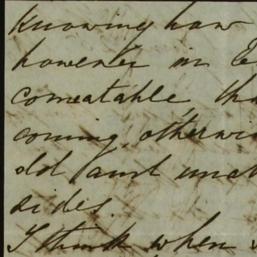 knowing how
however in
comeatable, tha
coming, otherwi
old aunt
sides.
I think when